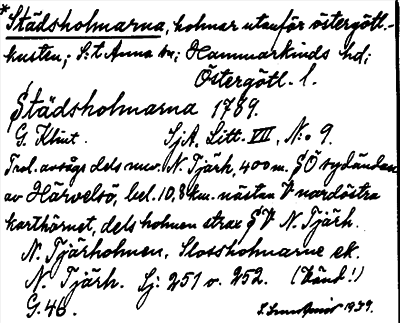 *Städsholmarna, holmar utanför östergötl.-
kusten; S:t Anna sn; Hammarkinds hd;
Östergötl. l.
Städsholmarna 1789.
G. Klint. SjA. Litt. VIII, No 9.
Trol. avsågs dels nuv. N. Tjärh, 400 m. SÖ sydändan
av Härvelsö, bel. 10,8 km. nästan V nordöstra
karthörnet, dels holmen strax SV N. Tjärh.
N. Tjärholmen, Slossholmarne ek.
N. Tjärh. Sj: 251 o. 252. (Länd!)
G. 46. 1939.